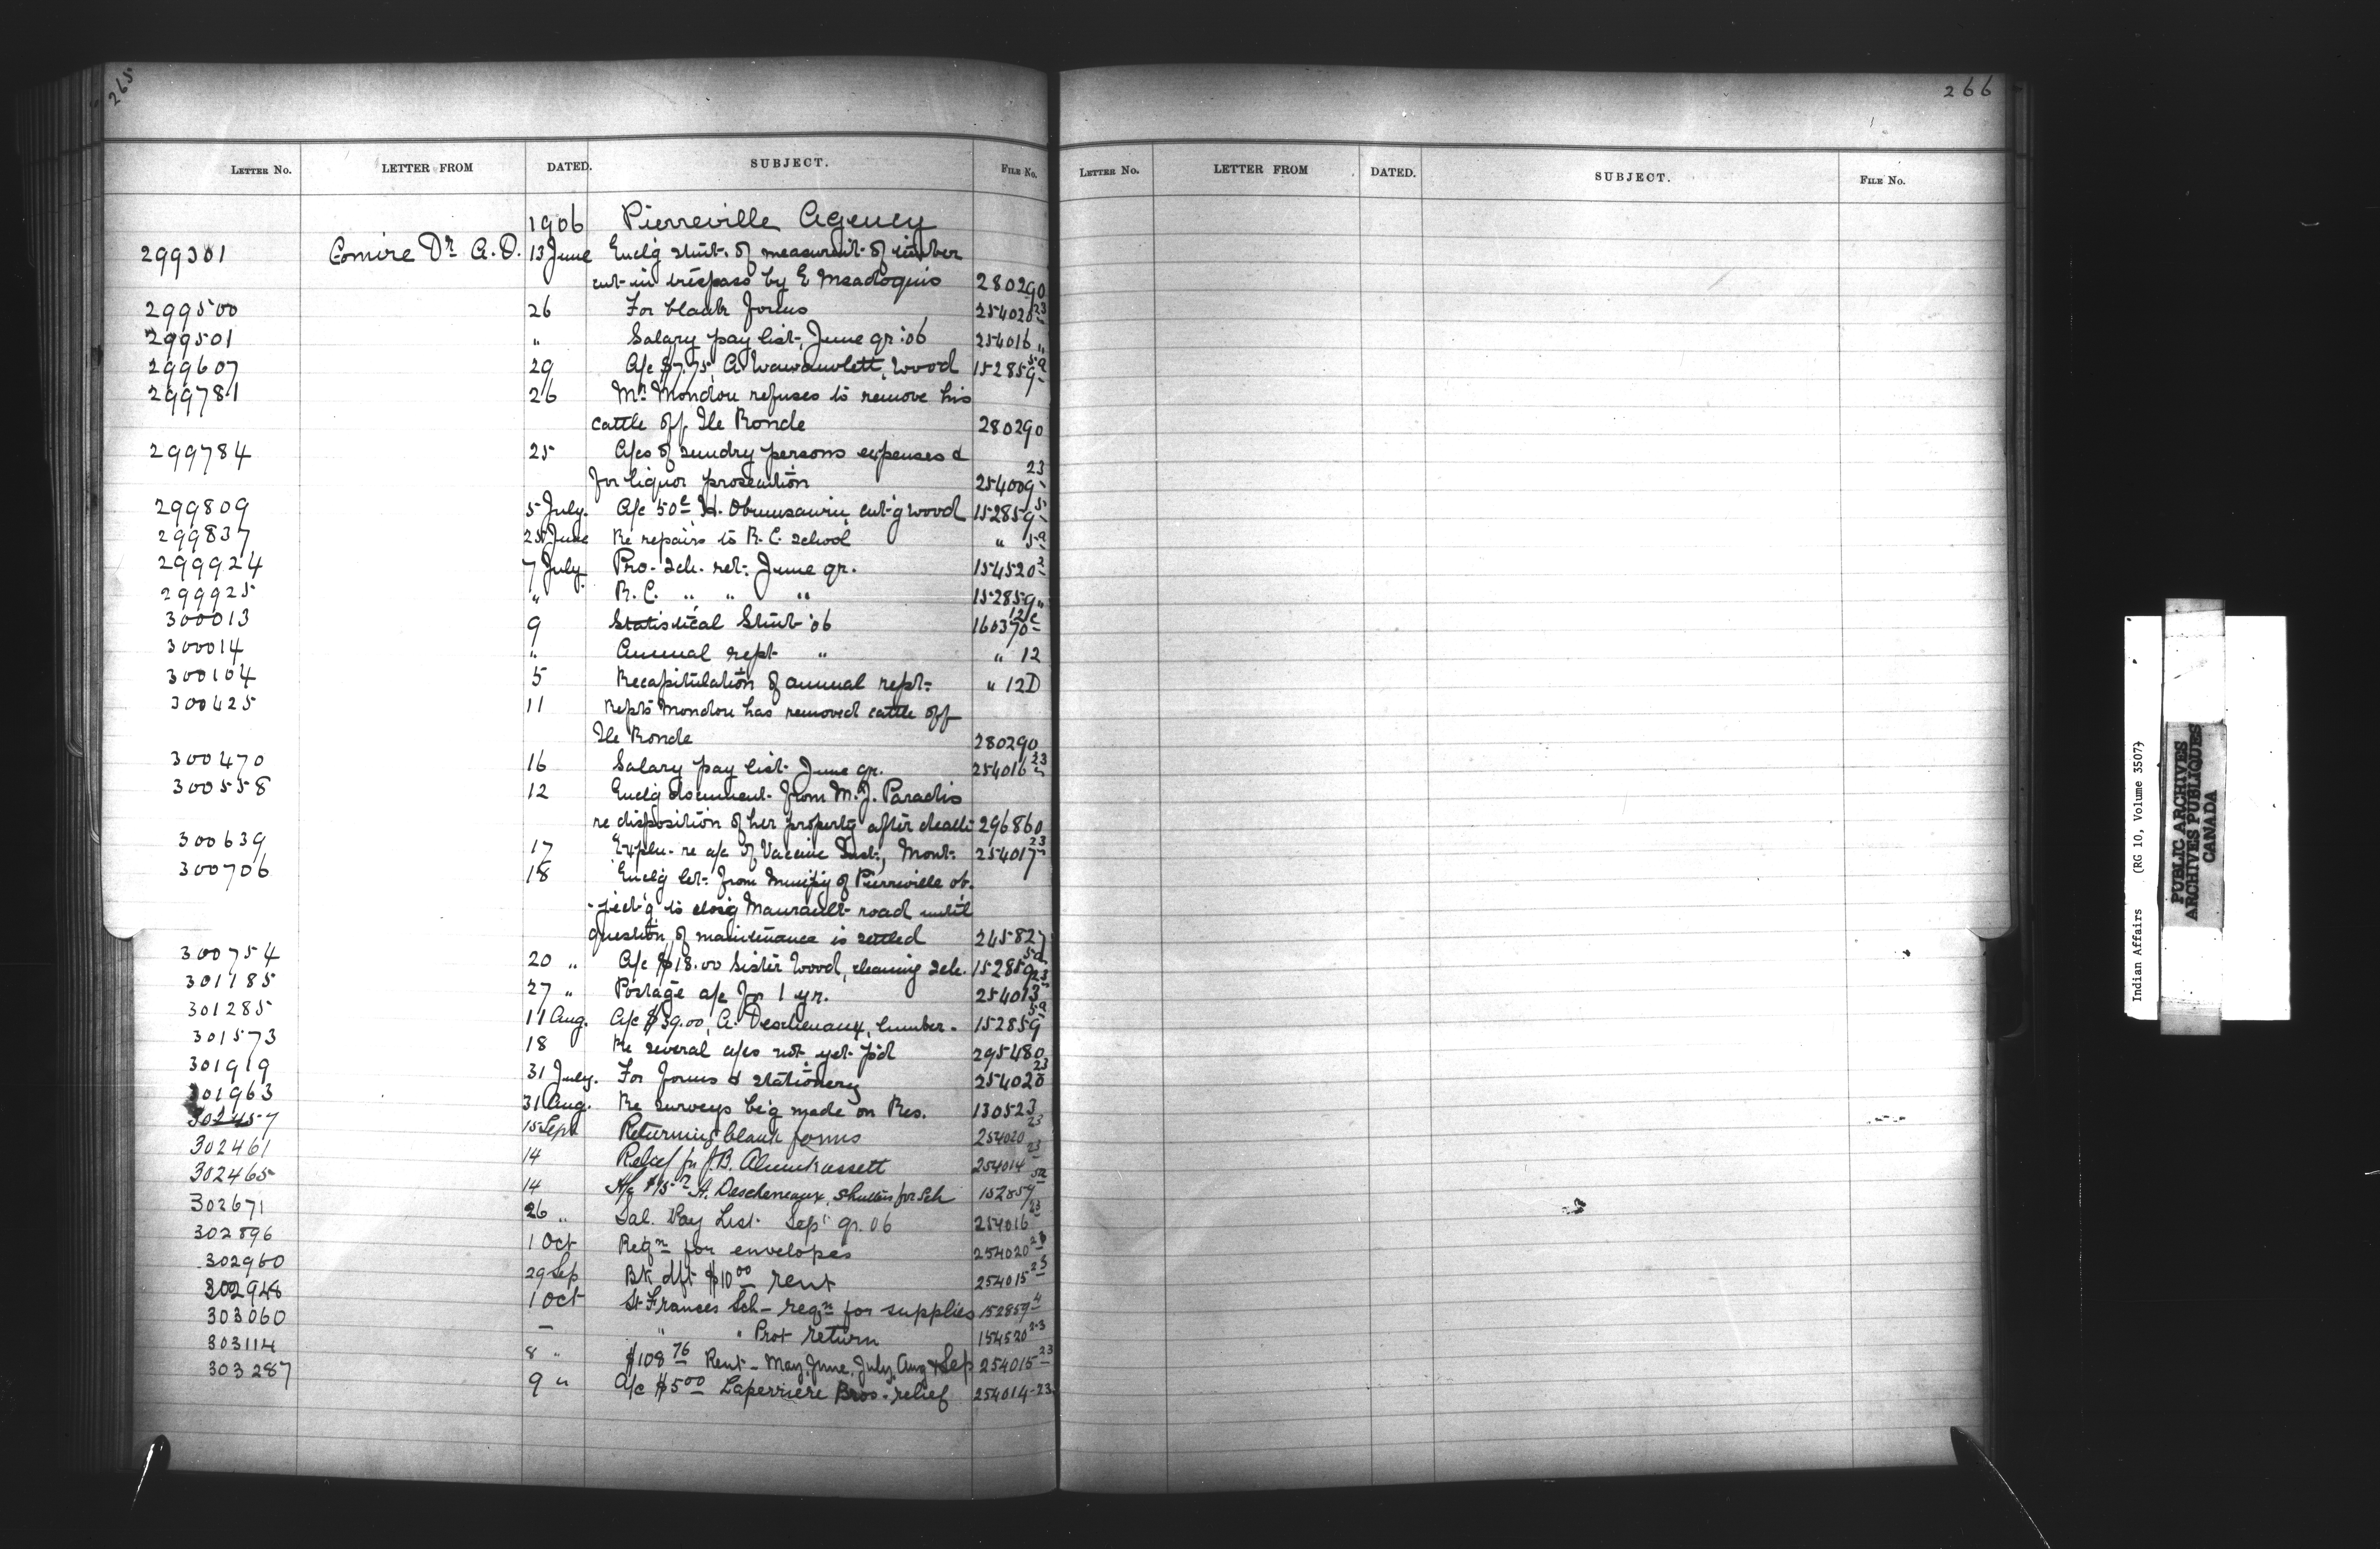 265
LETTER NO. LETTER FROM DATED. SUBJECT. FILE NO.
1906 Pierreville Agency
299301 Comire Dr. A.D. 13 June Enclg stmt. of measurmt. of timber
cut in trespass by E Msadoquis 280290
299500 26 For blank forms 254020 23
299501 " Salary pay list, June qr '06 254016 "
299607 29 A/c $7.75, A. Wawanolett, Wood 152859 5a
299781 26 Mr. Mondou refuses to remove his
cattle off Ile Ronde 280290
299784 25 A/cs of sundry persons expenses &
for liquor prosecution 254009 23
299809 5 July. A/c 50c Obumsawin, cut'g wood 152859 5
299837 25 June Re repairs to R.C. School " 5a
299924 7 July. Pro. Sch. ret. June qr. 154520 2
299925 " R.C. " " " 152859 "
300013 9 Statistical Stmt '06 160370 12c
300014 " Annual rept " " 12
300104 5 Recapitulation of annual rept. " 12D
300425 11 Repts Mondou has removed cattle off
Ile Ronde 280290
300470 16 Salary pay list June qr. 254016 23
300558 12 Enclg document from M.J. Paradis
re disposition of her property after death 296860
300639 17 Expln. re a/c of Vaccine Inst., Mont. 254017 23
300706 18 Enclg let. from Municipy of Pierreville ob-
-ject'g to closg Maurault road until
question of maintenance is settled 245827
300754 20 " A/c $18.00 Sister Wood, cleaning sch. 152859 5a
301185 27 " Postage a/c for 1 yr. 254013 23
301285 11 Aug. A/c $39.00, A. Descheneaux, lumber. 152859 5a
301573 18 Re several a/cs not yet p'd 295480
301919 31 July. For forms & stationery 254020 23
301963 31 Aug. Re surveys be'g made on Res. 130523
302457 15 Sept Returning blank forms 254020 23
302461 14 Relief for J.B. 254014 23
302465 14 A/c $15 A. Descheneaux, Shutters for Sch 152859 5a
302671 26 " Sal. Pay List. Sept qr. 06 254016 23
302896 1 Oct Reqn for envelopes 254020 23
302960 29 Sep Bk dft $10.00 rent 254015 23
302948 1 Oct St Frances Sch - reqn for supplies 152859 4
303060 — " " Prot return 154520 2-3
303114 8 " $108.76 Rent - May, June, July, Aug & Sep 254015 23
303287 9 " A/c $5.00 Laperriere Bros. relief 254014-23
266
LETTER NO. LETTER FROM DATED. SUBJECT. FILE NO.
Indian Affairs (RG 10, Volume 3507)
PUBLIC ARCHIVES
ARCHIVES PUBLIQUES
CANADA